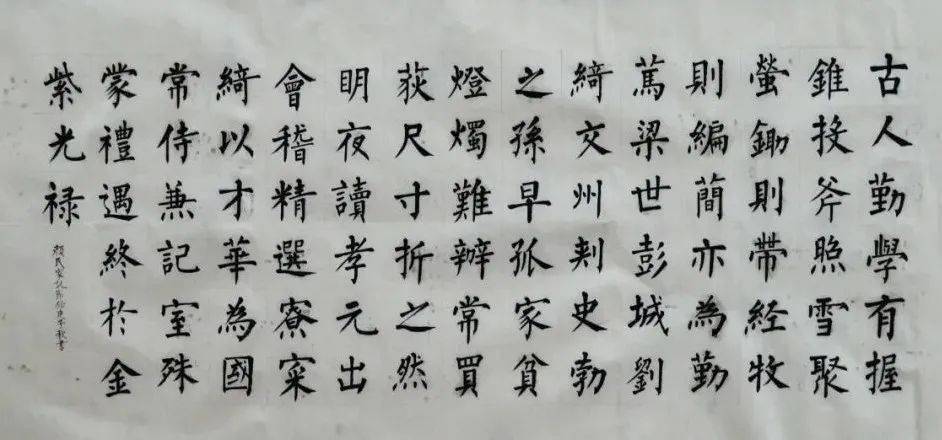 古人勤學有握
錐投斧照雪聚
螢鋤則带经牧
則編簡亦為勤
篤梁世彭城劉
綺交州刺史勃
之孫早孤家貧
燈燭難辦常買
荻尺寸折之然
明夜讀孝元出
會稽精選寮寀
綺以才華為國
常侍兼記室殊
蒙禮遇終於金
紫光禄
顏氏家訓